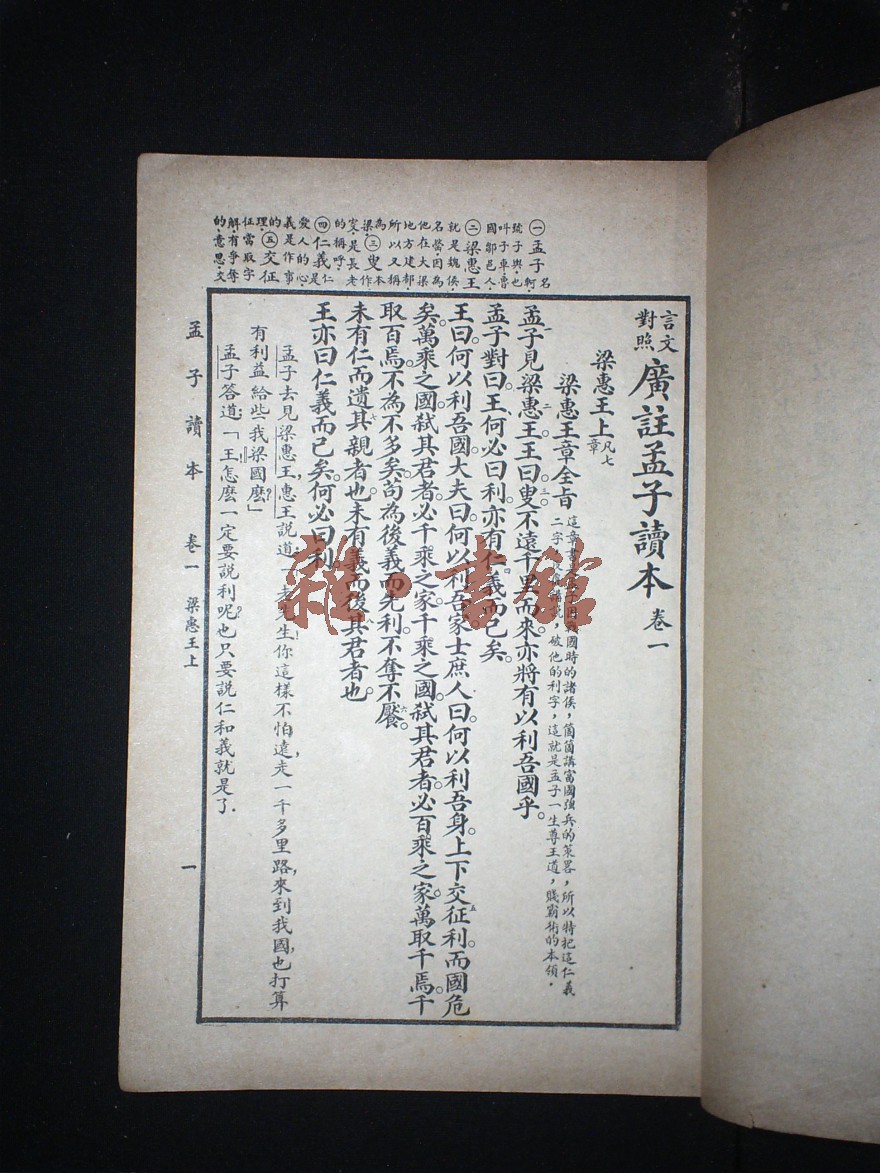 ㊀孟子名軻
號子輿也
叫子車魯
國鄒邑人
㊁梁惠王
就是魏侯
名罃因為
他在大梁
地方建都
所以又稱
為梁㊂叟本作
㚂是長老
的稱呼
㊃仁義仁是
愛人的心
義是作事
的理㊄交征
征當取字
解有爭奪
的意思交
言文對照
廣註孟子讀本 卷一
梁惠王上凡七章
梁惠王章全旨
戰國時的諸侯，箇箇講富國强兵的策畧，所以特把這仁義
二字
破他的利字，這就是孟子一生尊王道，賤霸術的本領．
孟子見梁惠王王曰叟不遠千里而來亦將有以利吾國乎。
孟子對曰王何必曰利亦有仁義而已矣。
王曰何以利吾國大夫曰何以利吾家士庶人曰何以利吾身上下交征利而國危
矣萬乘之國弒其君者必千乘之家千乘之國弒其君者必百乘之家萬取千焉千
取百焉不為不多矣苟為後義而先利不奪不饜。
未有仁而遺其親者也未有義而後其君者也。
王亦曰仁義而已矣何必曰利
孟子去見梁惠王，惠王說道：「老先生！你這樣不怕遠，走一千多里路，來到我國，也打算
有利益給些我梁國麽？」
孟子答道：「王！怎麽一定要說利呢？也只要說仁和義就是了．
孟子讀本 卷一 梁惠王上 一
雜·書館